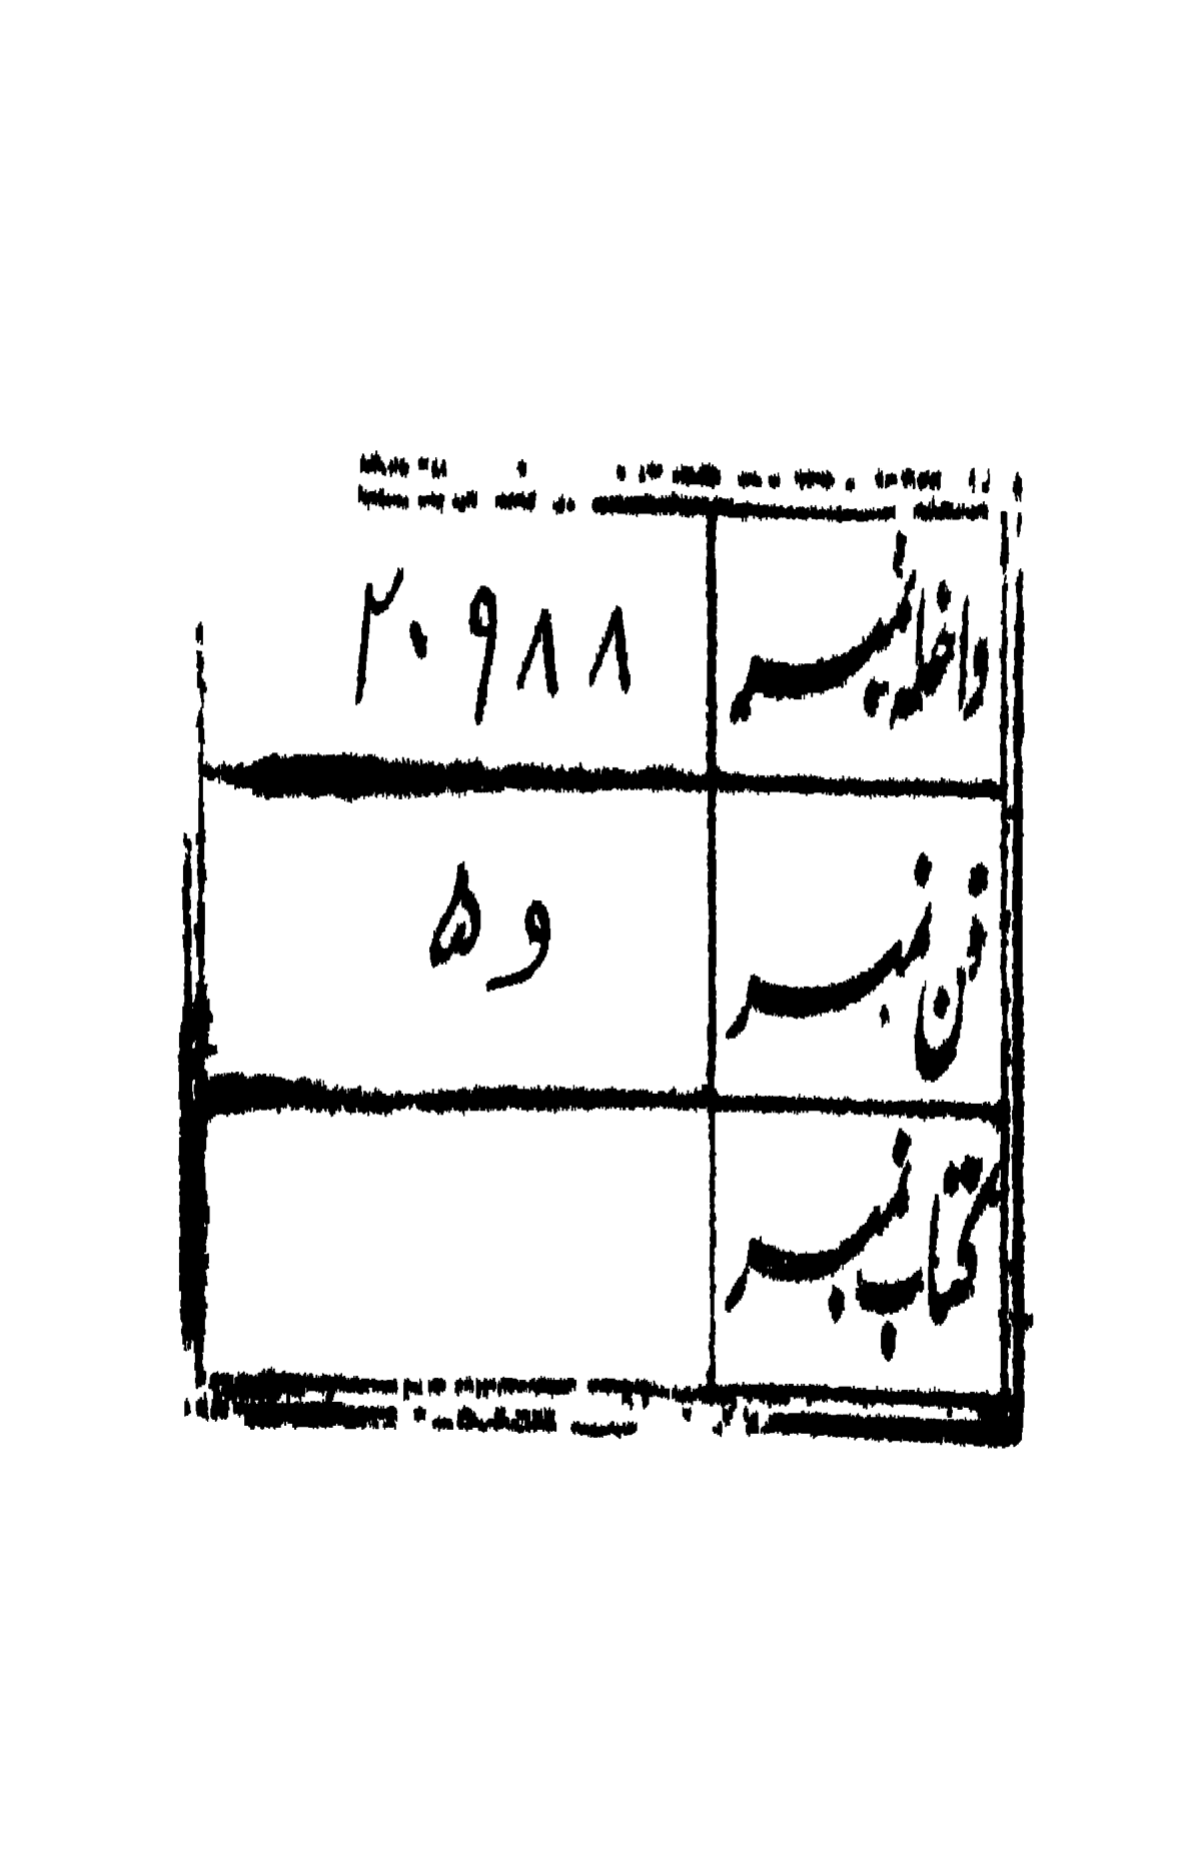 داخلہ نمبر ۲۰۹۸۸
فن نمبر و ۵
کتاب نمبر